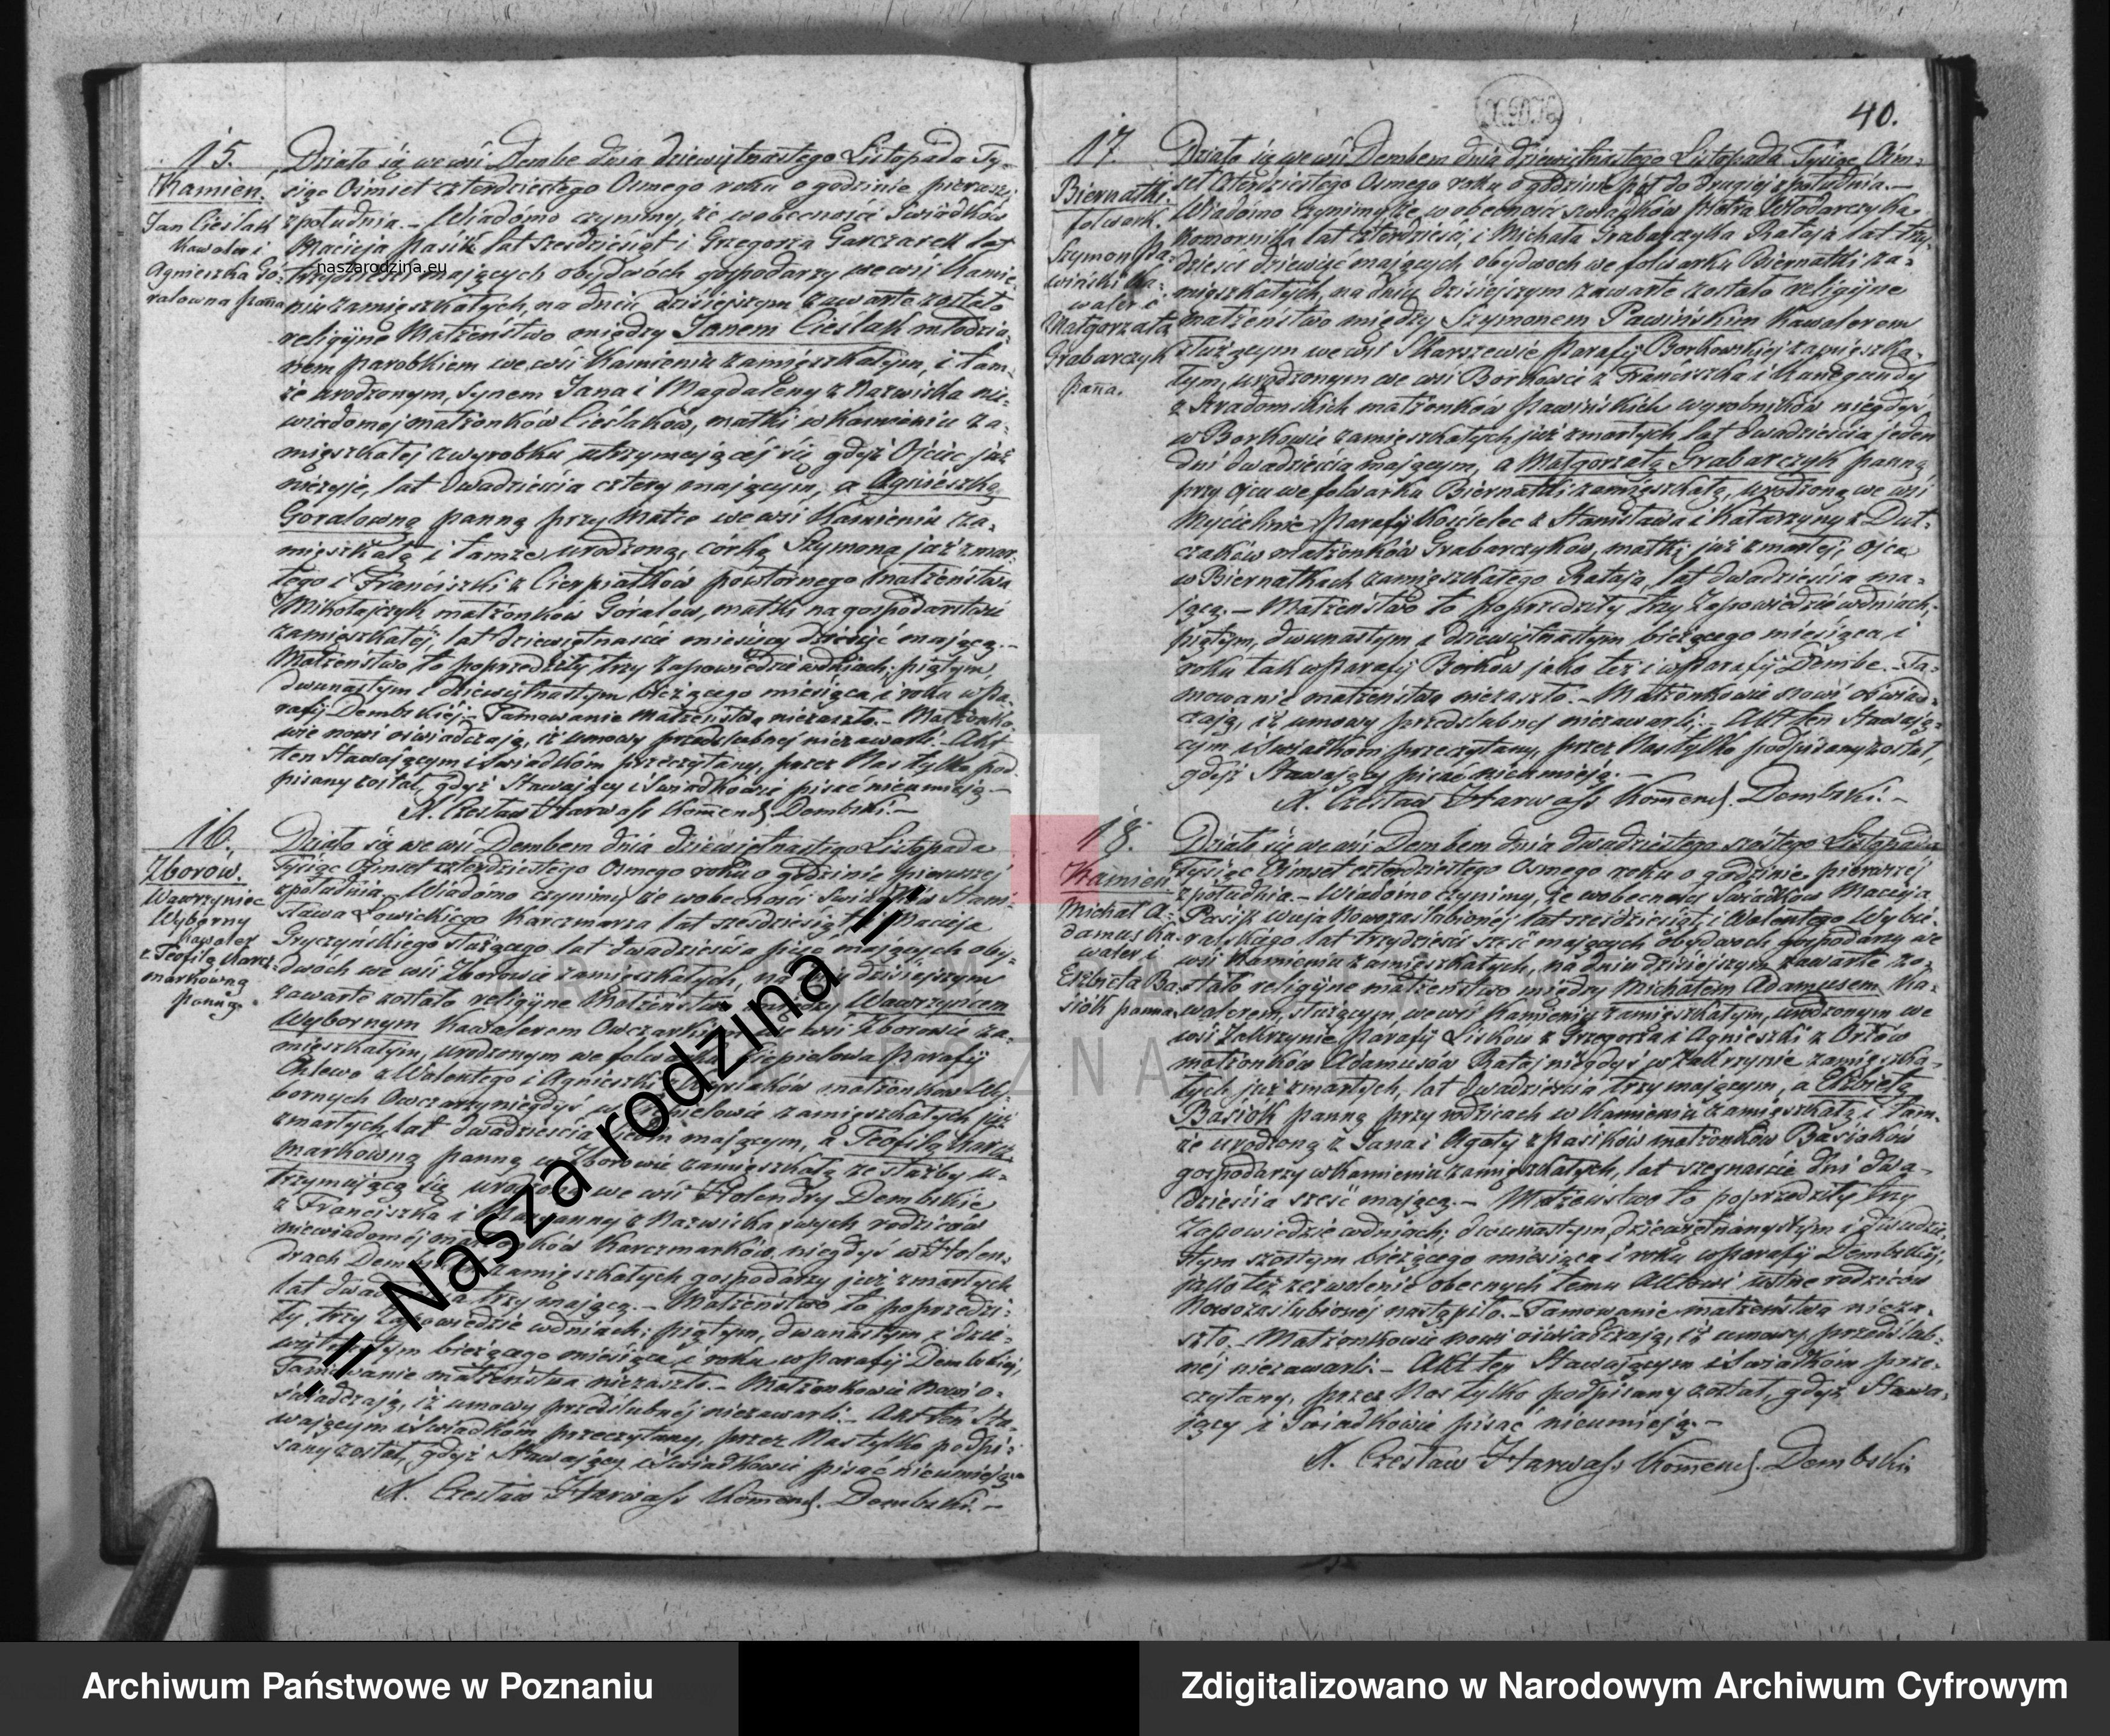 40.
15.
Kamień.
Jan Cieślak
Kawaler i
Agnieszka Go-
ralowna panna
Działo się we wsi Dembe dnia dziewiętnastego Listopada Ty-
siąc Ośmset czterdziestego Osmego roku o godzinie pierwszej
z południa. – Wiadomo czynimy, że w obecności Swiadków
Macieja Pasik lat sześdziesiąt i Grzegorza Garczarek lat
trzydzieści mających obydwóch gospodarzy we wsi Kamie-
niu zamięszkałych, na dniu dzisiejszym zawarte zostało
religijne Małżeństwo między Janem Cieślak młodzia-
nem parobkiem we wsi Kamieniu zamięszkałym, i tam-
że urodzonym, synem Jana i Magdaleny z Nazwiska nie-
wiadomej małżonków Cieślaków, matki w Kamieniu za-
mięszkałej z wyrobku utrzymującéj się gdyż Ojciec już
nieżyje, lat dwadzieścia cztery mającym, a Agnieszką
Goralowną panną przy Matce we wsi Kamieniu za-
mięszkałą i tamże urodzoną, córką Szymona już zmar-
łego i Franciszki z Cierpiałków powtórnego małżeństwa
Mikołajczyk, małżonkow Góralow, matki na gospodarstwie
zamięszkałej, lat dziewiętnaście miesięcy dziesięć mającą. –
Małżeństwo to poprzedziły trzy zapowiedzie wdniach; piątym,
dwunastym i dziewiętnastym bieżącego miesiąca i roku w pa-
rafij Dembskiéj. – Tamowanie małżeństwa niezaszło. – Małżonko-
wie nowi oświadczają, iż umowy przedślubnej niezawarli. – Akt
ten Stawającym i Swiadkóm przeczytany, przez Nas tylko pod-
pisany został, gdyż Stawający i Swiadkowie pisać nieumieją. –
X. Czesław Harwass Komend. Dembski. –
16.
Zborów.
Wawrzyniec
Wyborny
Kawaler
z Teofilą Karcz-
markówną
panną.
Działo się we wsi Dembem dnia dziewiętnastego Listopada
Tysiąc Ośmset czterdziestego Osmego roku o godzinie pierwszej
z południa. Wiadomo czynimy że w obecności Swiadków Stani-
sława Łowickiego Karczmarza lat sześdziesiąt i Macieja
Gryczyńskiego służącego lat dwadzieścia pięć mających oby-
dwóch we wsi Zborowie zamięszkałych, na dniu dzisiejszym
zawarte zostało religijne Małżeństwo między Wawrzyncem
Wybornym Kawalerem Owczarkiem we wsi Zborowie za-
mięszkałym, urodzonym we folwarku Ciępielowa Parafij
Chlewo z Walentego i Agnieszki małżonkow Wy-
bornych Owczarzy niegdyś w Ciepielowie zamięszkałych już
zmarłych, lat dwadzieścia mającym, a Teofilą Karcz-
markówną panną w Zborowie zamięszkałą ze służby u-
trzymującą się urodzoną we wsi Holendry Dembskie
z Franciszka i Maryanny z Nazwiska swych rodziców
niewiadoméj małżonków Karczmarków, niegdyś w Holen-
drach Dembskich zamięszkałych gospodarzy już zmarłych
lat dwadzieścia trzy mającą. – Małżeństwo to poprzedzi-
ły trzy Zapowiedzie wdniach; piątym, dwunastym i dzie-
więtnastym bieżącego miesiąca i roku w parafij Dembskiej,
Tamowanie małżeństwa niezaszło. – Małżonkowie nowi o-
świadczają, iż umowy przedślubnéj niezawarli. – Akt ten Sta-
wającym i Swiadkóm przeczytany, przez Nas tylko podpi-
sany został, gdyż Stawający i Swiadkowie pisać nieumieją. –
X. Czesław Harwass Komend. Dembski. –
17.
Biernatki.
folwark.
Szymon Pa-
wiński Ka-
waler i
Małgorzata
Grabarczyk
panna.
Działo się we wsi Dembem dnia dziewiętnastego Listopada Tysiąc Ośm-
set czterdziestego Osmego roku o godzinie pół do drugiej z południa. –
Wiadomo czynimy, że w obecności swiadków Piotra Włodarczyka
Komornika lat czterdzieści, i Michała Grabarczyka Rataja lat trzy-
dzieści dziewięć mających obydwoch we folwarku Biernatki za-
mięszkałych, na dniu dzisiejszym zawarte zostało religijne
małżeństwo między Szymonem Pawińskim Kawalerem
służącym we wsi Skarszewie Parafij Borkowskiéj zamięszka-
łym, urodzonym we wsi Borkowie z Franciszka i Kunegundy
z Stradomskich małżonków Pawińskich wyrobników niegdyś
w Borkowie zamięszkałych już zmarłych, lat dwadzieścia jeden
dni dwadzieścia mającym, a Małgorzatą Grabarczyk panną
przy ojcu we folwarku Biernatki zamięszkałą, urodzoną we wsi
Mycielinie Parafij Kościelec z Stanisława i Katarzyny z Dut-
czaków małżonków Grabarczyków, matki już zmarłej, ojca
w Biernatkach zamięszkałego Rataja, lat dwadzieścia ma-
jącą. – Małżeństwo to poprzedziły trzy Zapowiedzie wdniach;
piątym, dwunastym i dziewiętnastym bieżącego miesiąca i
roku tak w Parafij Borków jako też i w Parafij Dembe. – Ta-
mowanie małżeństwa niezaszło. – Małżonkowie nowi oświad-
czają, iż umowy przedślubnej niezawarli. – Akt ten Stawają-
cym i Swiadkom przeczytany, przez Nas tylko podpisany został,
gdyż Stawający pisać nieumieją. –
X. Czesław Harwass Komend. Dembski. –
18.
Kamień
Michał A-
damus Ka-
waler i
Elżbieta Ba-
siak panna
Działo się we wsi Dembem dnia dwadziestego szóstego Listopada
Tysiąc Ośmset czterdziestego Osmego roku o godzinie pierwszej
z południa. – Wiadomo czynimy, że w obecności Swiadków Macieja
Pasik wuja Nowozaślubionej lat sześdziesiąt, i Walentego Wybie-
ralskiego lat trzydzieści sześć mających obydwóch gospodarzy we
wsi Kamieniu zamięszkałych, na dniu dzisiejszym zawarte zo-
stało religijne małżeństwo między Michałem Adamusem Ka-
walerem, służącym we wsi Kamieniu zamięszkałym, urodzonym we
wsi Zakrzynie Parafij Lisków z Grzegorza i Agnieszki z Orłów
małżonków Adamusów Rataj niegdyś w Zakrzynie zamięszka-
łych już zmarłych, lat dwadzieścia trzy mającym, a Elżbietą
Basiak panną przy rodzicach w Kamieniu zamięszkałą i tam-
że urodzoną z Jana i Agaty z Pasików małżonków Basiaków
gospodarzy w Kamieniu zamięszkałych, lat szesnaście dni dwa-
dzieścia sześć mającą. – Małżeństwo to poprzedziły trzy
Zapowiedzie wdniach; dwunastym, dziewiętnanystym i dwudzie-
stym szóstym bieżącego miesiąca i roku w parafij Dembskiéj;
jako też zezwolenie obecnych temu Aktowi ustne rodziców
Nowozaślubionej nastąpiło. – Tamowanie małżeństwa nieza-
szło. Małżonkowie nowi oświadczają, iż umowy przedślub-
nej niezawarli. – Akt ten Stawającym i Swiadkóm prze-
czytany, przez Nas tylko podpisany został, gdyż Stawa-
jący i Swiadkowie pisać nieumieją. –
X. Czesław Harwass Komend. Dembski
naszarodzina.eu
.:= Nasza rodzina =
ARCHIWUM PAŃSTWOWE
W POZNANIU
Archiwum Państwowe w Poznaniu
Zdigitalizowano w Narodowym Archiwum Cyfrowym